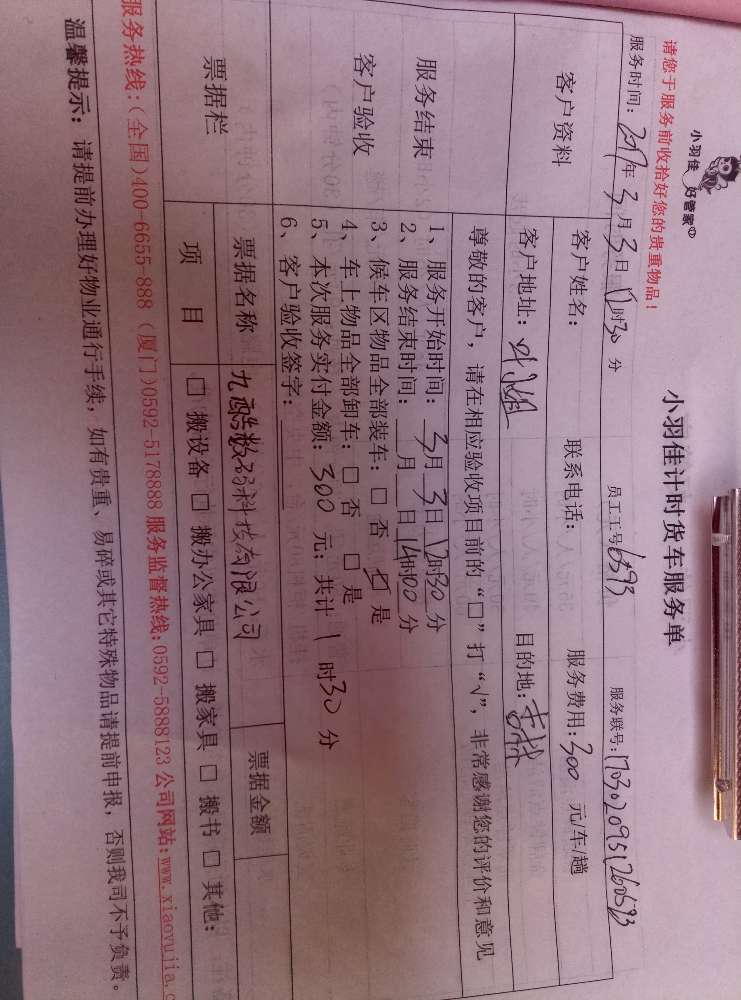 小羽佳 好管家
请您于服务前收拾好您的贵重物品！
小羽佳计时货车服务单
服务时间：2017年3月3日12时30分 员工工号6593 服务联号：17030209512600593
客户资料
客户姓名： 联系电话： 服务费用：300 元/车/趟
客户地址： 目的地：
尊敬的客户，请在相应验收项目前的“□”打“√”，非常感谢您的评价和意见
服务结束
客户验收
1、服务开始时间：3月3日12时30分
2、服务结束时间： 月 日14时00分
3、候车区物品全部装车：□ 否 ☑ 是
4、车上物品全部卸车：□ 否 □ 是
5、本次服务实付金额：300 元；共计 1 时30 分
6、客户验收签字：
票据栏
票据名称 九酷数码科技有限公司 票据金额
项 目 □ 搬设备 □ 搬办公家具 □ 搬家具 □ 搬书 □ 其他：
服务热线：(全国)400-6655-888 (厦门)0592-5178888 服务监督热线:0592-5888123 公司网站:www.xiaoyujia.c
温馨提示：请提前办理好物业通行手续，如有贵重、易碎或其它特殊物品请提前申报，否则我司不予负责。